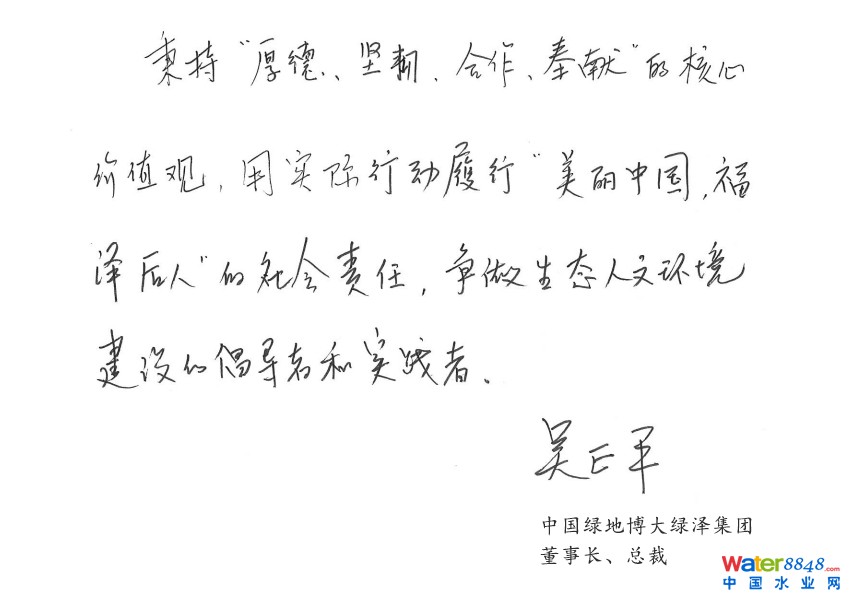 秉持“厚德、坚韧、合作、奉献”的核心
价值观,用实际行动履行“美丽中国,福
泽后人”的社会责任,争做生态人文环境
建设的倡导者和实践者、
吴正平
中国绿地博大绿泽集团
董事长、总裁
Water8848.com
中国水业网